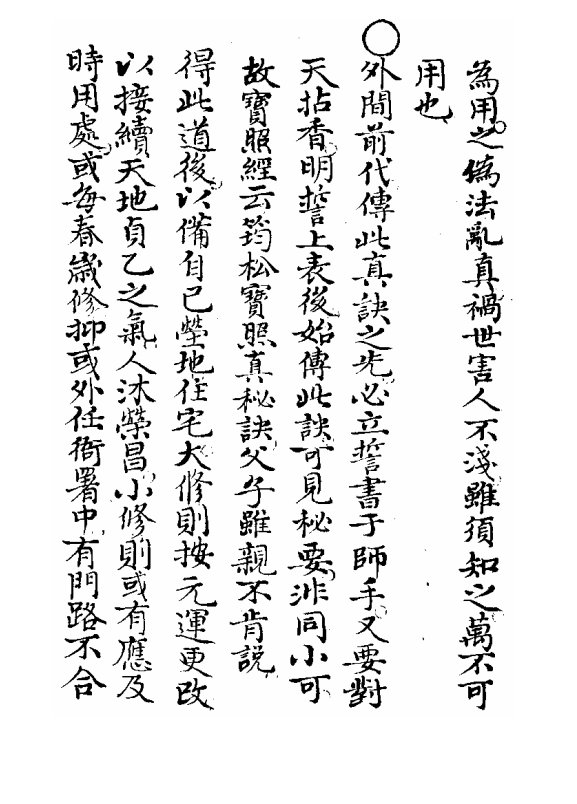 為用之偽法亂真禍世害人不淺雖須知之萬不可
用也
○外間前代傳此真訣之先必立誓書于師手又要對
天拈香明誓上表後始傳此訣可見秘要非同小可
故寶照經云筠松寶照真秘訣父子雖親不肯說
得此道後以備自己塋地住宅大修則按元運更改
以接續天地貞乙之氣人沐榮昌小修則或有應及
時用處或每春歲修抑或外任衙署中有門路不合